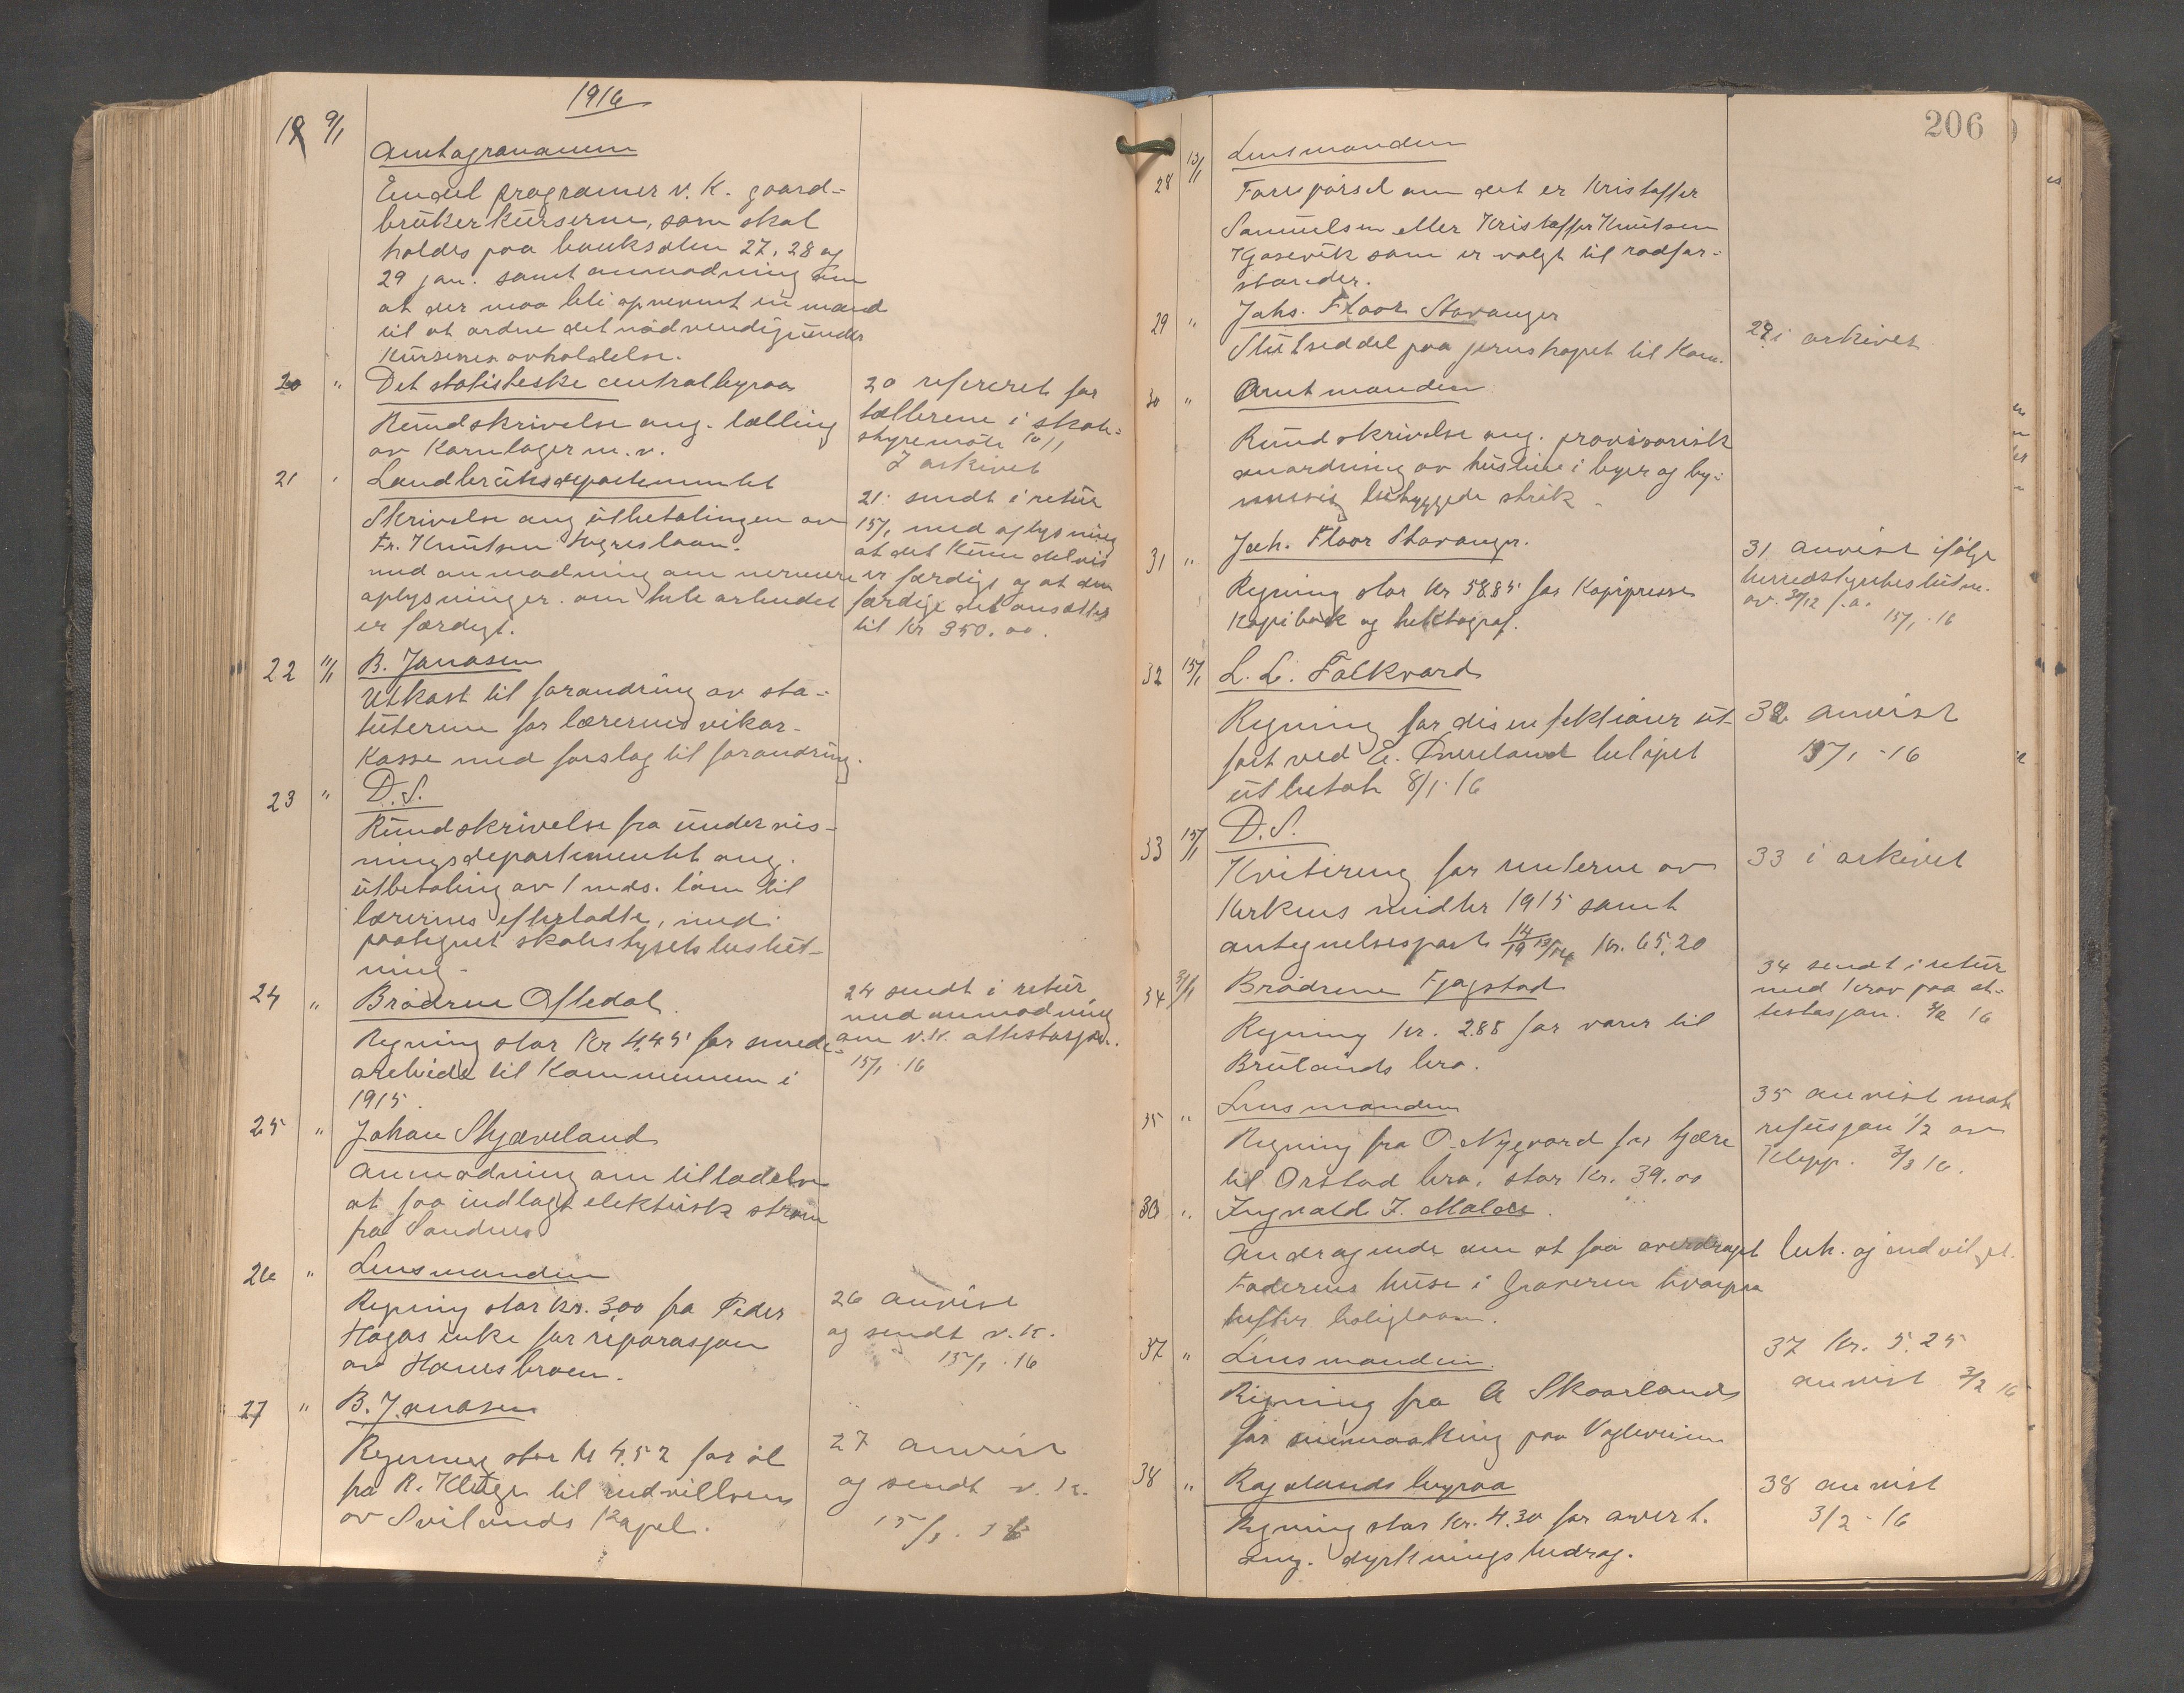 1916
19 9/1
Amtagronomen
Endel programer v. K. gaard-
brukerkurserne, som skal
holdes paa banksalen 27, 28 og
29 jan. samt anmodning om
at der maa bli opnevnt en mand
til at ordne det nødvendig under
Kursenes avholdelse.
20 " Det statistiske centralbyraa
Rundskrivelse ang. tælling
av Kornlager m. v.
20 refereret for
tællerene i skole-
styremøte 10/1
I arkivet
21 " Landbruksdepartementet
Skrivelse ang utbetalingen av
Fr. Knutsen Hegreslaan.
med anmodning om nermere
oplysninger. om hele arbeidet
er færdigt.
21. sendt i retur
15/1 med oplysning
at det Kun delvis
er færdigt og at den
færdige del ansættes
til Kr 350.00.
22 11/1 B. Jonasen
Utkast til forandring av sta-
tuterne for lærernes vikar-
Kasse med forslag til forandring.
23 " D. S.
Rundskrivelse fra undervis-
ningsdepartementet ang.
utbetaling av 1 mds. løn til
lærernes efterladte, med
paategnet skolestyrets beslut-
ning.
24 " Brødrene Oftedal.
Regning stor Kr 4.45 for smede-
arbeide til Kommunen i
1915.
24 sendt i retur
med anmodning
om v. K. attestasjon.
15/1 16
25 " Johan Skjæveland
Anmodning om tilladelse
at faa indlagt elektrisk strøm
fra Sandnes
26 " Lensmanden
Regning stor kr. 3,00 fra Peder
Høgås enke for reparasjon
av Hanesbroen.
26 anvist
og sendt v. K.
15/1 16
27 " B. Jonasen
Regning stor Kr 4.52 for øl
fra R. Kluge til indvillsen
av Svilands Kapel.
27 anvist
og sendt v. K.
15/1. 16
206
28 13/1 Lensmanden
Forespørsel om det er Kristoffer
Samuelsen eller Kristoffer Knutsen
Kjosevik som er valgt til rodfor-
stander.
29 " Johs. Floor Stavanger
Slutseddel paa jernskapet til Kom.
29 i arkivet
30 " Amtmanden
Rundskrivelse ang. provisorisk
anordning av husleie i byer og by-
messig bebyggede strøk.
31 " Joh. Floor Stavanger.
Regning stor Kr 58.85 for Kopipresse
Kopibok og hektograf.
31 anvist ifølge
herredstyrebeslutn.
av 30/12 f.a.
15/1. 16
32 15/1 L. L. Folkvord
Regning for disenfektioner ut-
ført ved E. Øvreland beløpet
utbetalt 8/1 16
32 anvist
15/1 - 16
33 15/1 D. S.
Kvitering for renterne av
Kirkens midler 1915 samt
antegnelsespost 14/19 13/14 Kr. 65.20
33 i arkivet
34 31/1 Brødrene Fjogstad
Regning Kr. 2.85 for varer til
Brulands bro.
34 sendt i retur
med krav paa at-
testasjon. 3/2 16
35 " Lensmanden
Regning fra O. Nygaard for tjære
til Orstad bro. stor Kr. 39.00
35 anvist mot
refusjon 1/2 av
Klepp. 3/2 16.
36 " Ingvald I. Malde.
Andragende om at faa overdraget
Faderens huse i Graveren hvorpaa
hefter boliglaan.
beh. og indvilget.
37 " Lensmanden.
Regning fra A Skaarlands
for snemaaking paa Vagleveien
37 Kr. 5.25
anvist 3/2 16
38 " Rogalands byraa
Regning stor Kr. 4.30 for avert.
ang. dyrkningsbidrag.
38 anvist
3/2 - 16